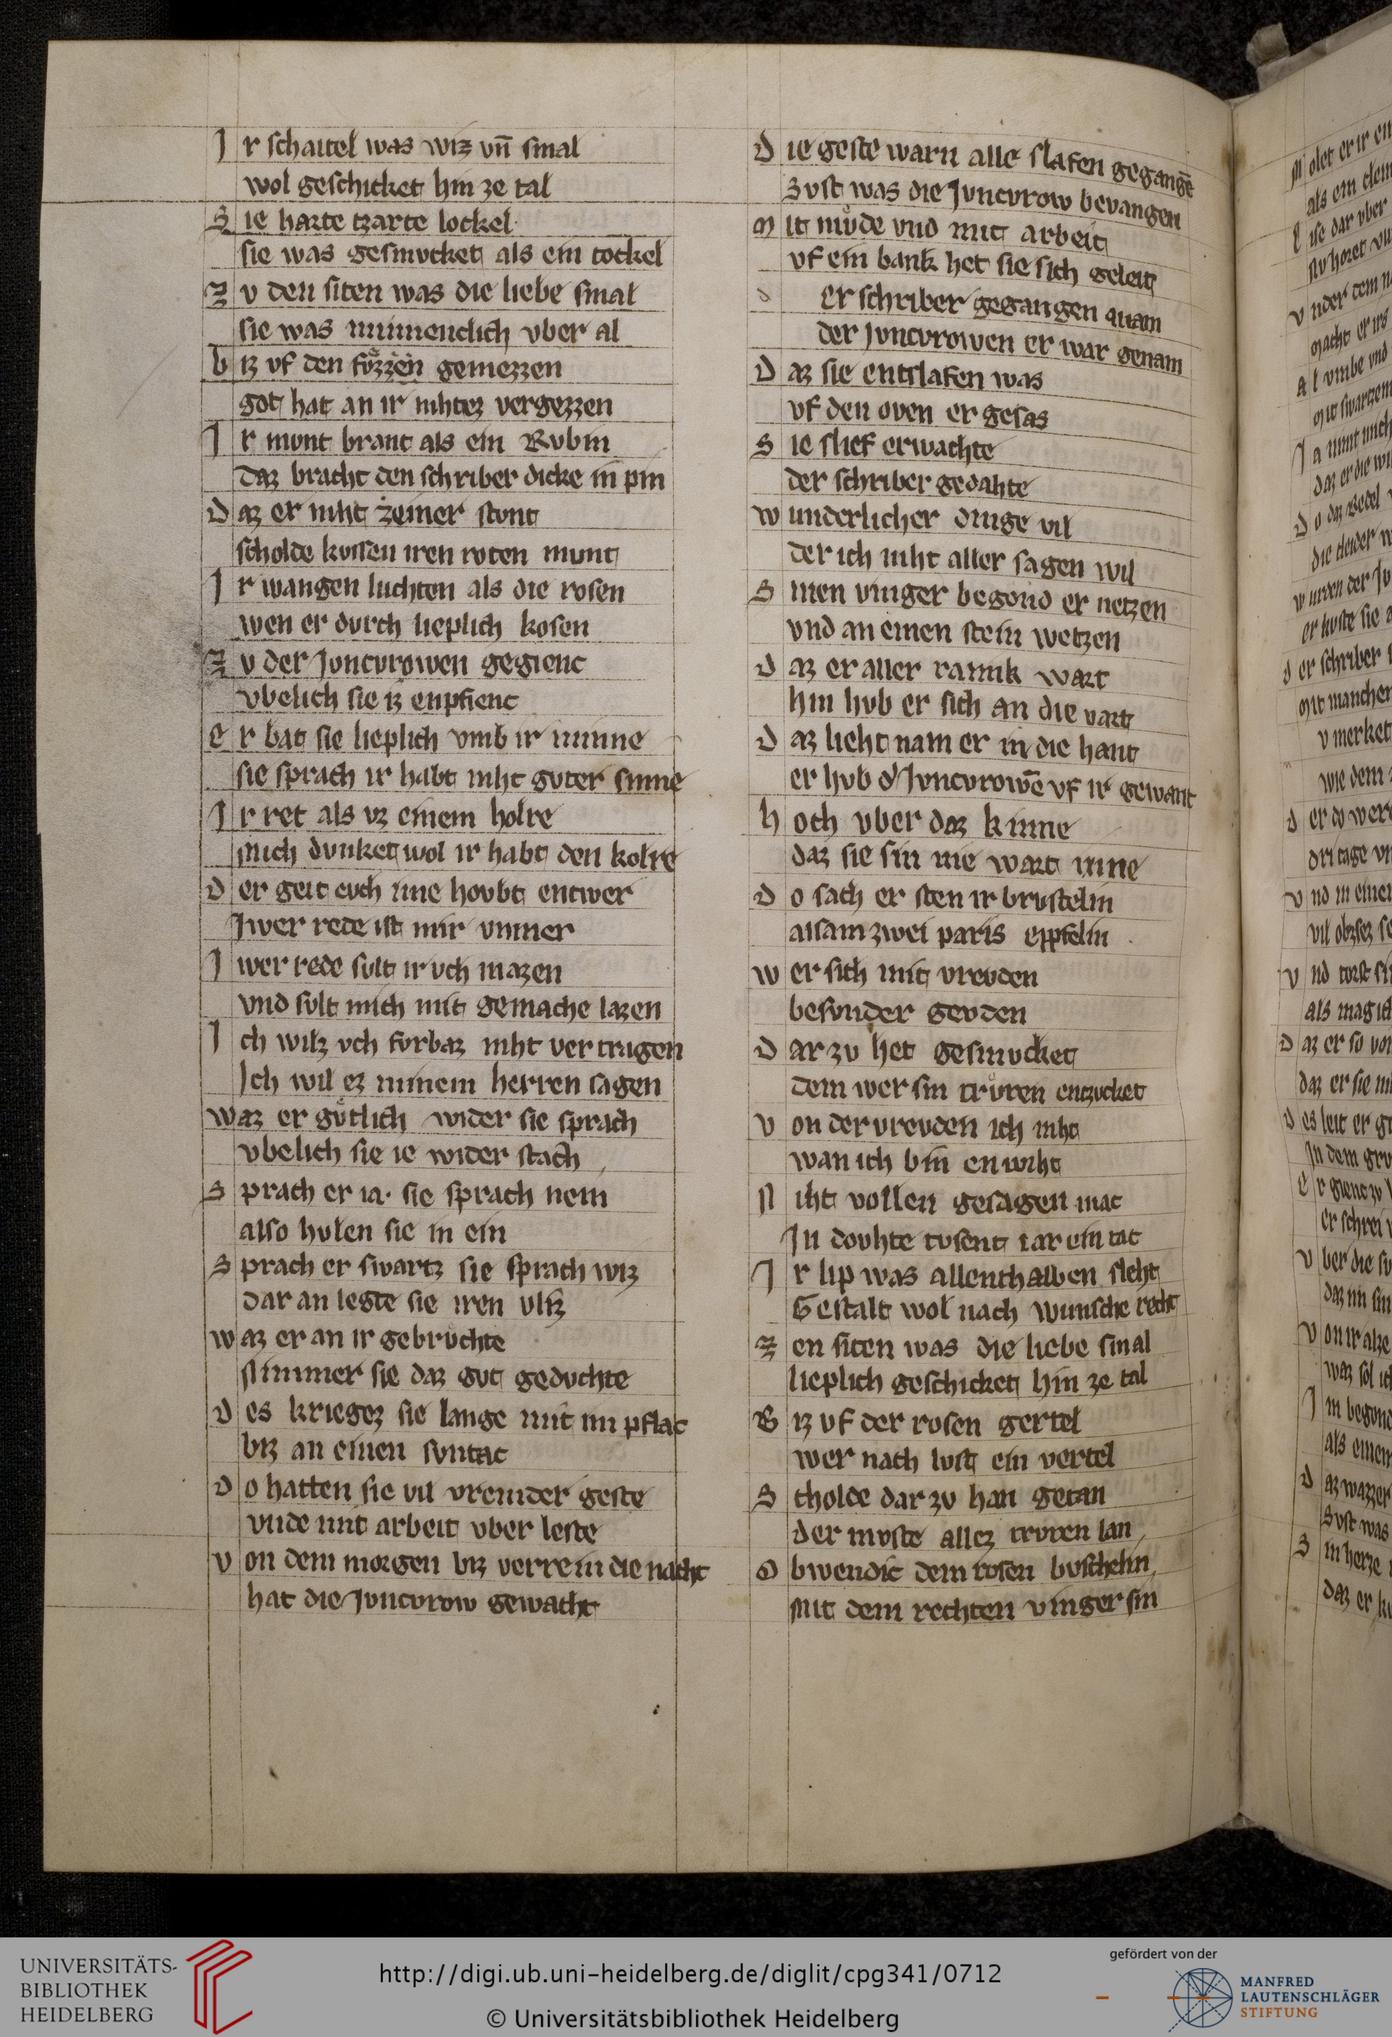 Ir schaitel was wiz vn̄ smal
wol geschicket hin ze tal
Sie harte tzarte lockel
sie was gesmvcket als ein tockel
Zv den siten was die liebe smal
sie was minnenclich vber al
biz vf den fvͤzzen gemezzen
got hat an ir nihtez vergezzen
Ir mvnt brant als ein Rvbin
daz bracht den schriber dicke in pin
Daz er niht zeiner stvnt
scholde kvssen iren roten mvnt
Ir wangen luchten als die rosen
wen er dvrch lieplich kosen
Zv der Jvncvrowen gegienc
vbelich sie iz enpfienc
Er bat sie lieplich vmb ir minne
sie sprach ir habt niht gvter sinne
Ir ret als vz einem holre
mich dvnket wol ir habt den kolre
Der geit evch ime hovbt entwer
Iwer rede ist mir vnmer
Iwer rede svlt ir vch mazen
vnd svlt mich mit gemache lazen
Ich wilz vch fvrbaz niht vertragen
Ich wil ez minem herren sagen
waz er gvͤtlich wider sie sprach
vbelich sie ie wider stach
Sprach er ia. sie sprach nein
also hvlen sie in ein
Sprach er swartz sie sprach wiz
dar an legte sie iren vliz
waz er an ir gebrvchte
nimmer sie daz gvt gedvchte
Des kriegez sie lange mit im pflac
biz an einen svntac
Do hatten sie vil vremder geste
vnde mit arbeit vber leste
Von dem morgen biz verre in die nacht
hat die Jvncvrow gewacht
Die geste warn alle slafen gegangē
Svst was die Jvncvrow bevangen
Mit mvͤde vnd mit arbeit
vf ein bank het sie sich geleit
der schriber gegangen quam
der Jvncvrowen er war genam
Daz sie entslafen was
vf den oven er gesas
Sie slief er wachte
der schriber gedahte
wunderlicher dinge vil
der ich niht aller sagen wil
Sinen vinger begond er netzen
vnd an einen stein wetzen
Daz er aller ramik wart
hin hvb er sich an die vart
Daz lieht nam er in die hant
er hvb d' Jvncvrowē vf ir gewant
hoch vber daz kinne
daz sie sin nie wart inne
Do sach er sten ir brvstelin
alsam zwei paris eppfelin
wer sich mit vrevden
besvnder gevden
Dar zv het gesmvcket
dem wer sin trvͤren entzvcket
Von der vrevden ich niht
wan ich bin en wiht
Niht vollen gesagen mac
In dovhte tvsent iar ein tac
Ir lip was allenthalben sleht
Gestalt wol nach wunsche recht
Zen siten was die liebe smal
lieplich geschicket hin ze tal
Biz vf der rosen gertel
wer nach lvst ein vertel
Scholde dar zv han getan
der mvste allez trvren lan
Obwendic dem rosen bvschelin
Mit dem rechten vinger sin
UNIVERSITÄTS-
BIBLIOTHEK
HEIDELBERG
http://digi.ub.uni-heidelberg.de/diglit/cpg341/0712
© Universitätsbibliothek Heidelberg
gefördert von der
MANFRED
LAUTENSCHLÄGER
STIFTUNG